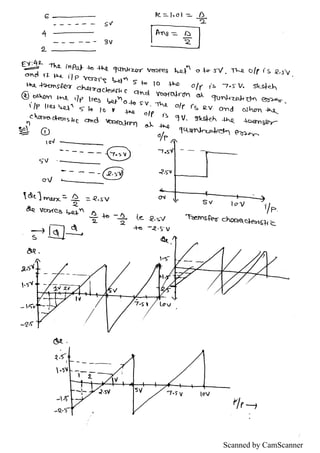 6
5V
4
8V
2
K = 1.01 = Δ/2
Ans = Δ/2
EX:42. The input to the quantizer varies betⁿ 0 to 5V. The o/p is 2.5V.
and is the i/p varies betⁿ 5 to 10 the o/p is 7.5V. sketch
the transfer characteristic and variation of quantization error.
② when the i/p lies betⁿ 0 to 5V. The o/p is 2V and when the
i/p lies betⁿ 5 to 10 V the o/p is 9V. sketch the transfer
characteristic and variation of the quantization error
Solⁿ ①
10V
7.5V
5V
2.5V
0V
o/p
7.5V
2.5V
0V 5V 10V i/p
[Qe]max = Δ/2 = 2.5V
Qe varies betⁿ Δ/2 to -Δ/2 ie 2.5V
to -2.5V
Transfer characteristic
S → Q
Qe.
2.5V
1.5V
1V 2V
1V 5V 7.5V 10V
-1.5V
-2.5
Qe
1.5
-2.5
Qe.
2.5
1.5V
1 2
1V 2.5V 5V 7.5V 10V
-1.5
-2.5V
i/p →
Scanned by CamScanner